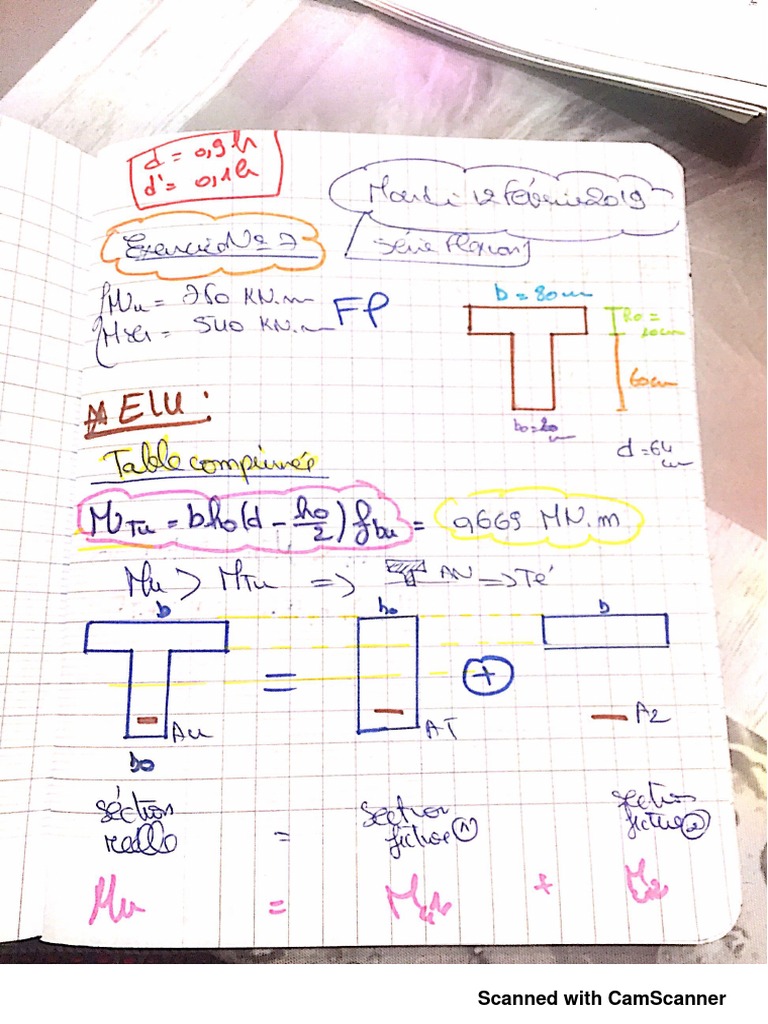 d = 0,9h
d' = 0,1h
Mardi 12 Février 2019
Exercice N° 7
Série Flexion
Mu = 750 KN.m
Mser = 540 KN.m
FP
b = 80cm
ho = 10cm
60cm
bo=20cm
d = 64cm
ELU :
Table comprimée
MTu = bho(d - ho/2) fbu = 0,669 MN.m
Mu > MTu => AN => Té
b = bo + b
Au
A1
A2
bo
séction réelle = section fictive ① section fictive ②
Mu = Mu1 + Mu2
Scanned with CamScanner